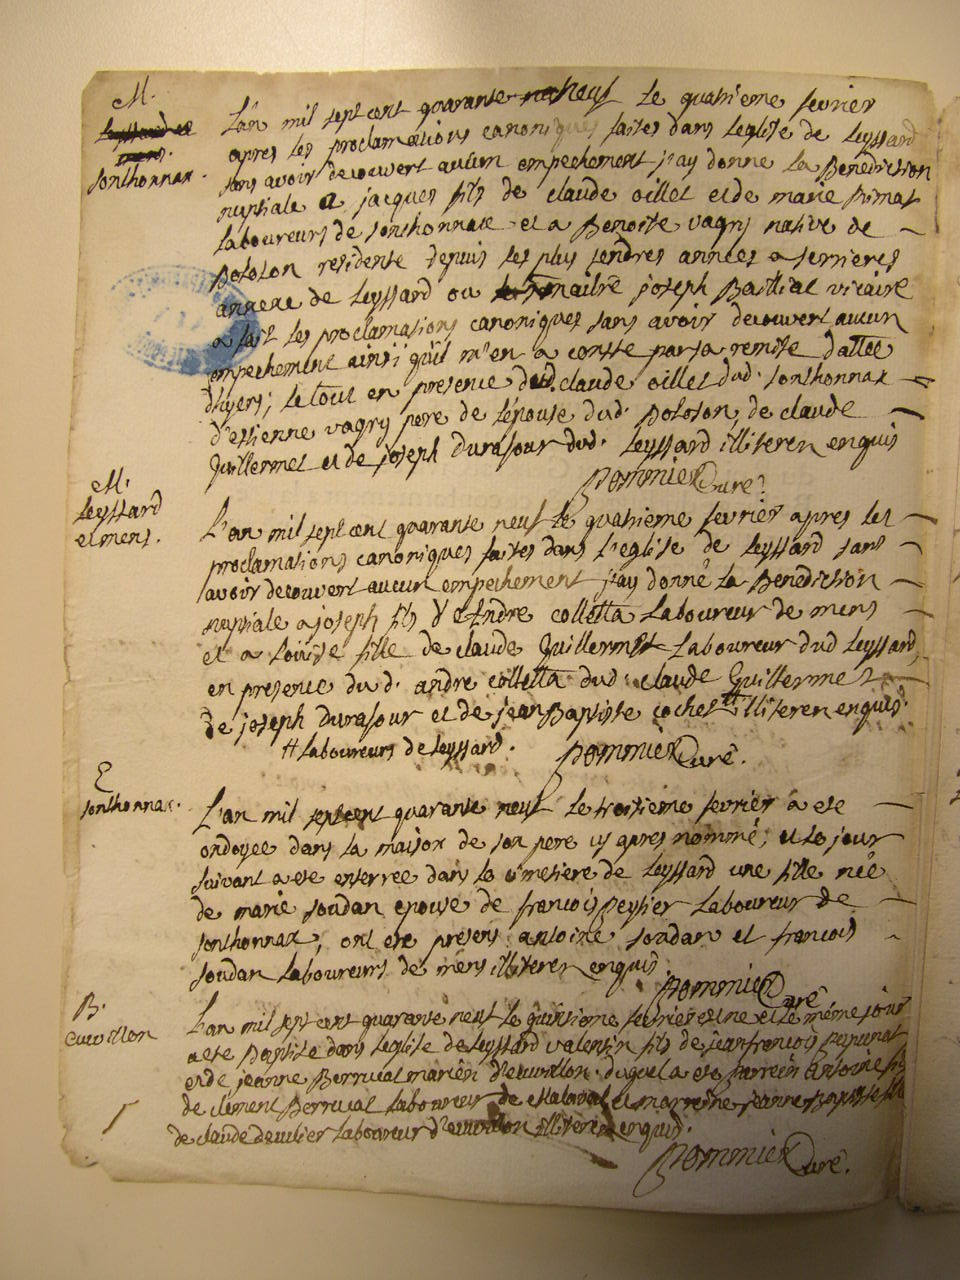 M.
Sonthonnax.
L'an mil sept cent quarante neuf le quatrieme fevrier
apres les proclamations canoniques faites dans l'eglise de Leyssard
sans avoir decouvert aucun empechement j'ay donne la Benediction
nuptiale a jacques fils de claude oillet et de marie
Laboureurs de sonthonnax et a Benoite vagry native de
Boloson residente depuis les plus tendres années a serrieres
annexe de Leyssard ou maitre joseph Bastiat vicaire
a fait les proclamations canoniques sans avoir decouvert aucun
empechement ainsi qu'il m'en a conste par sa remise dattée
d'hyers; le tout en presence dud. claude oillet dud. sonthonnax
d'estienne vagry pere de l'épouse dud. Boloson, de claude
Guillermet et de joseph Durafour dud. Leyssard illiteren enquis
Pommier Curé.
M.
Leyssard
et mens.
L'an mil sept cent quarante neuf le quatrieme fevrier apres les
proclamations canoniques faites dans l'eglise de Leyssard sans
avoir decouvert aucun empechement j'ay donné la Benediction
nuptiale a joseph fils d'Andre colletta Laboureur de mens
et a Loüise fille de claude Guillermet Laboureur dud Leyssard,
en presence dud. andre colletta dud. claude Guillermet
de joseph Durafour et de jean Baptiste cochet # illiteren enquis.
# Laboureurs de Leyssard. Pommier Curé.
E
Sonthonnax.
L'an mil sept cent quarante neuf le troisieme fevrier a ete
ondoyée dans la maison de son pere cy apres nommé, et le jour
suivant a ete enterrée dans le cimetiere de Leyssard une fille née
de marie soudan epouse de francois Peysier Laboureur de
sonthonnax, ont ete presens antoine soudan et francois
soudan Laboureurs de mens illiteren enquis.
Pommier Curé
B.
Cuvillon
L'an mil sept cent quarante neuf le fevrier est ne et le même jour
a ete Baptise dans l'eglise de Leyssard valentin fils de jean francois
et de jeanne Berrucat mariés d'euvillon duquel a ete parrein Antoine fils
de clement Berrucat Laboureur de et marreine jeanne Baptiste fille
de claude Laboureur illiteren enquis.
Pommier Curé.